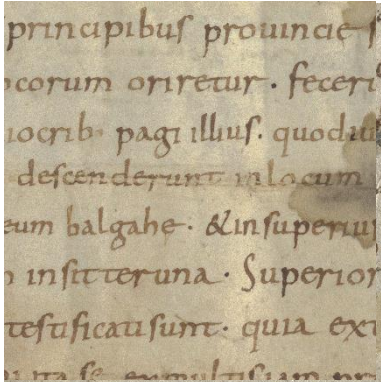 principibus prouincie
ocorum oriretur. feceri
iocrib pagi illius. quod
descenderunt in locum
eum balgahe. & in superius
insitteruna. Superior
testificati sunt. quia ex